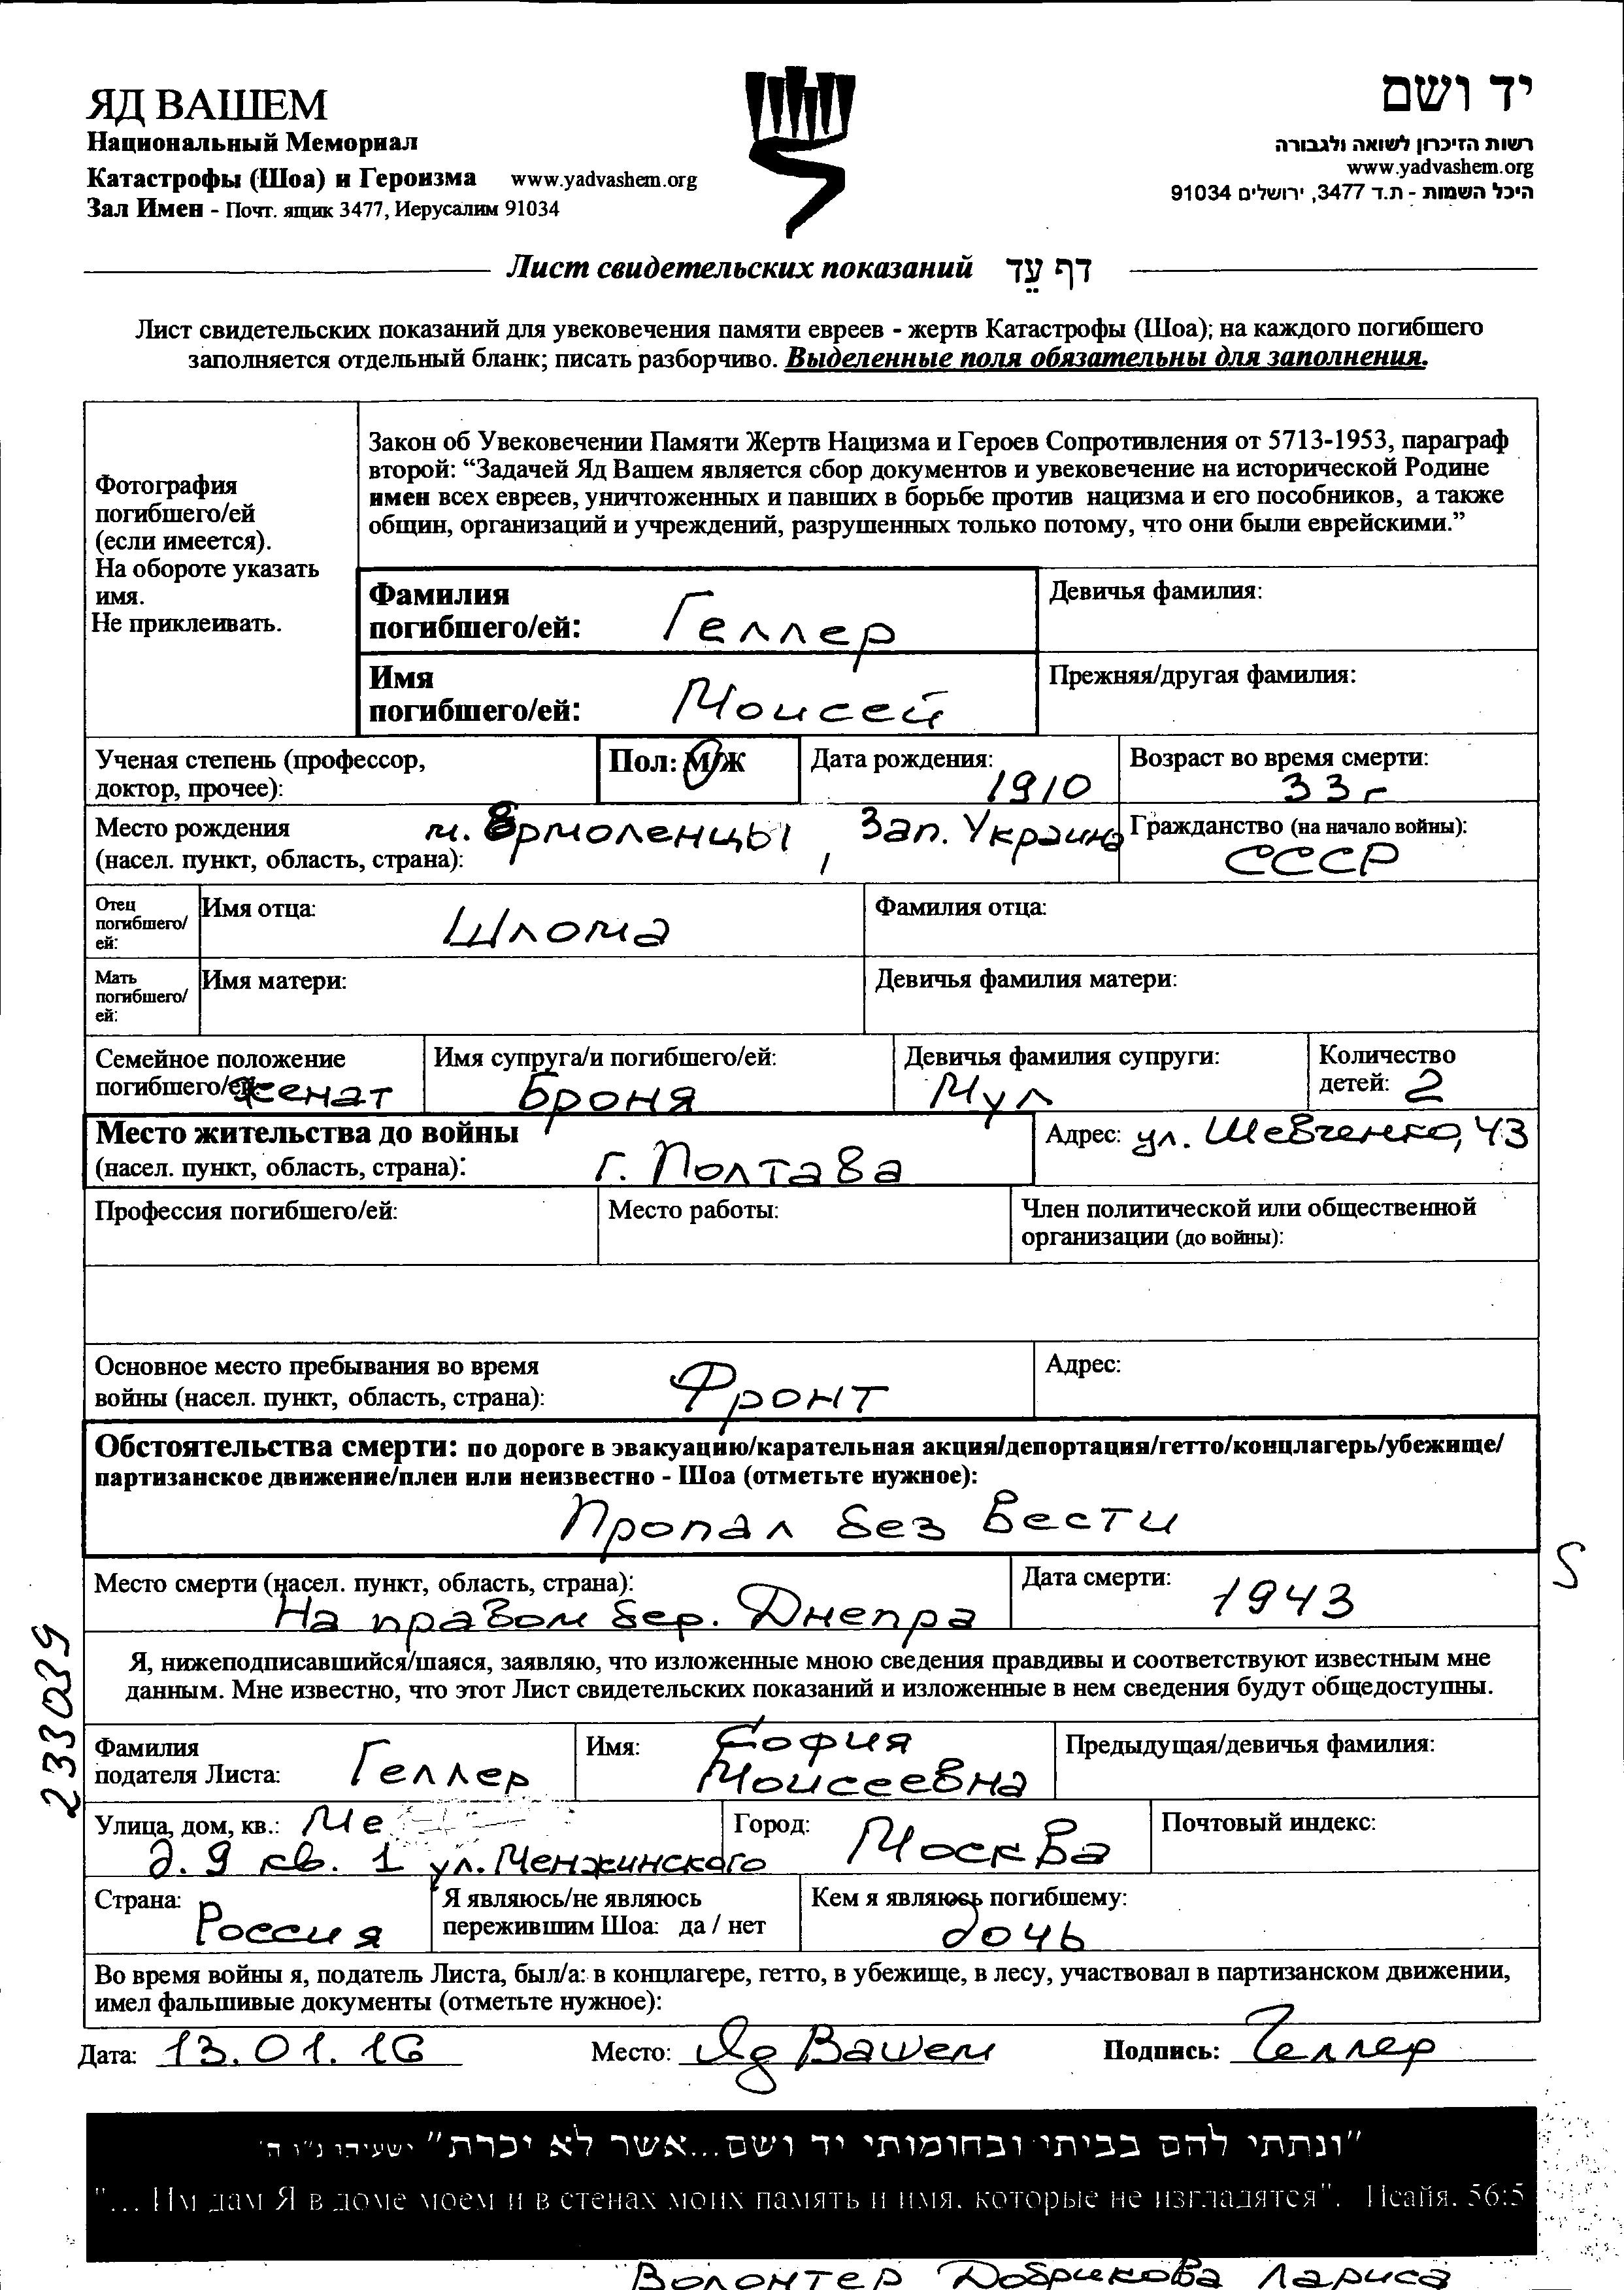 ЯД ВАШЕМ
Национальный Мемориал
Катастрофы (Шоа) и Героизма www.yadvashem.org
Зал Имен - Почт. ящик 3477, Иерусалим 91034
יד ושם
רשות הזיכרון לשואה ולגבורה
www.yadvashem.org
היכל השמות - ת.ד 3477, ירושלים 91034
Лист свидетельских показаний דף עֵד
Лист свидетельских показаний для увековечения памяти евреев - жертв Катастрофы (Шоа); на каждого погибшего
заполняется отдельный бланк; писать разборчиво. Выделенные поля обязательны для заполнения.
Фотография
погибшего/ей
(если имеется).
На обороте указать
имя.
Не приклеивать.
Закон об Увековечении Памяти Жертв Нацизма и Героев Сопротивления от 5713-1953, параграф
второй: “Задачей Яд Вашем является сбор документов и увековечение на исторической Родине
имен всех евреев, уничтоженных и павших в борьбе против нацизма и его пособников, а также
общин, организаций и учреждений, разрушенных только потому, что они были еврейскими.”
Фамилия
погибшего/ей: Геллер
Девичья фамилия:
Имя
погибшего/ей: Моисей
Прежняя/другая фамилия:
Ученая степень (профессор,
доктор, прочее):
Пол: М/Ж
Дата рождения:
1910
Возраст во время смерти:
33 г
Место рождения м. Ермоленцы, Зап. Украина
(насел. пункт, область, страна):
Гражданство (на начало войны):
СССР
Отец
погибшего/
ей:
Имя отца: Шлома
Фамилия отца:
Мать
погибшего/
ей:
Имя матери:
Девичья фамилия матери:
Семейное положение
погибшего/ей: женат
Имя супруга/и погибшего/ей:
Броня
Девичья фамилия супруги:
Мул
Количество
детей: 2
Место жительства до войны
(насел. пункт, область, страна): г. Полтава
Адрес: ул. Шевченко, 43
Профессия погибшего/ей:
Место работы:
Член политической или общественной
организации (до войны):
Основное место пребывания во время
войны (насел. пункт, область, страна): Фронт
Адрес:
Обстоятельства смерти: по дороге в эвакуацию/карательная акция/депортация/гетто/концлагерь/убежище/
партизанское движение/плен или неизвестно - Шоа (отметьте нужное):
Пропал без вести
S
Место смерти (насел. пункт, область, страна):
На правом бер. Днепра
Дата смерти: 1943
233039
Я, нижеподписавшийся/шаяся, заявляю, что изложенные мною сведения правдивы и соответствуют известным мне
данным. Мне известно, что этот Лист свидетельских показаний и изложенные в нем сведения будут общедоступны.
Фамилия
подателя Листа: Геллер
Имя: София
Моисеевна
Предыдущая/девичья фамилия:
Улица, дом, кв.: Ме
д. 9 кв. 1 ул. Менжинского
Город: Москва
Почтовый индекс:
Страна: Россия
Я являюсь/не являюсь
пережившим Шоа: да / нет
Кем я являюсь погибшему:
дочь
Во время войны я, податель Листа, был/а: в концлагере, гетто, в убежище, в лесу, участвовал в партизанском движении,
имел фальшивые документы (отметьте нужное):
Дата: 13.01.16 Место: Яд Вашем Подпись: Геллер
"ונתתי להם בביתי ובחומותי יד ושם...אשר לא יכרת" ישעיהו נ"ו ה'
"... Им дам Я в доме моем и в стенах моих память и имя, которые не изгладятся". Исайя. 56:5
Волонтер Добрикова Лариса